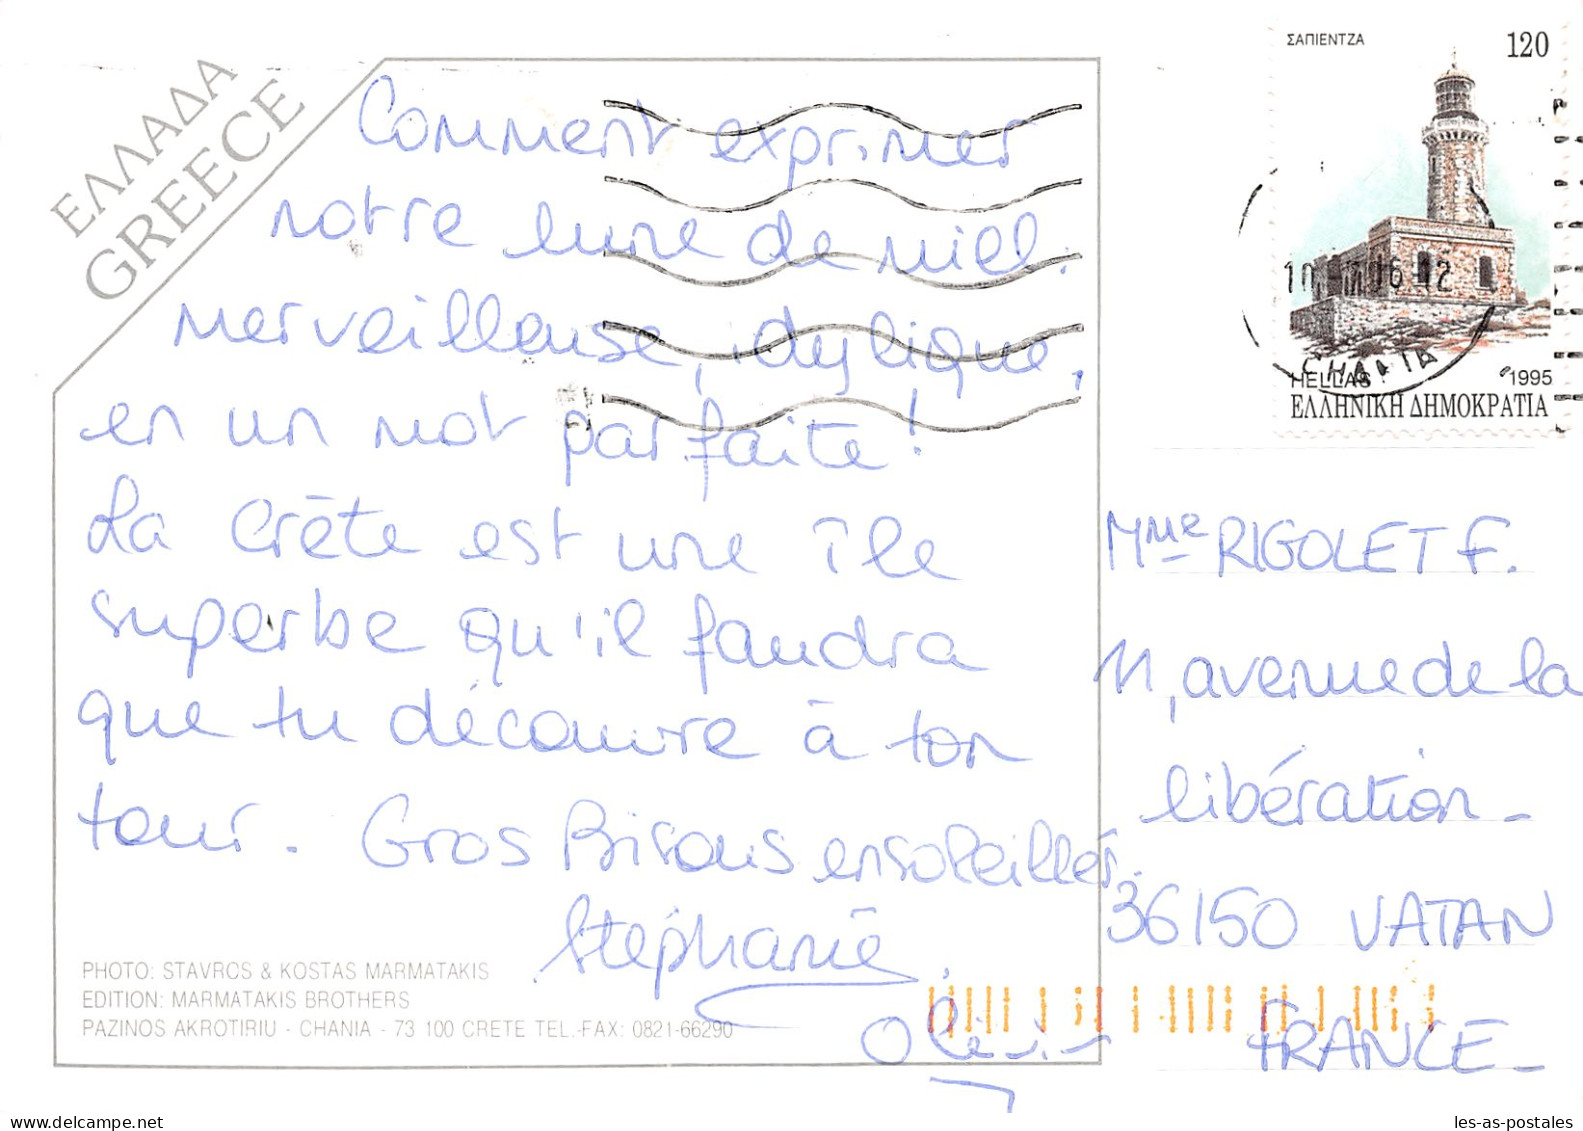 ΕΛΛΑΔΑ
GREECE
Comment exprimer
notre lune de miel.
Merveilleuse, idylique,
en un mot parfaite !
La Crète est une île
superbe qu'il faudra
que tu découvre à ton
tour. Gros Bisous ensoleillés.
Stéphanie
Olivier
PHOTO: STAVROS & KOSTAS MARMATAKIS
EDITION: MARMATAKIS BROTHERS
PAZINOS AKROTIRIU - CHANIA - 73 100 CRETE TEL.-FAX: 0821-66290
ΣΑΠΙΕΝΤΖΑ 120
HELLAS 1995
ΕΛΛΗΝΙΚΗ ΔΗΜΟΚΡΑΤΙΑ
CHANIA
Mme RIGOLET F.
11, avenue de la
libération -
36150 VATAN
FRANCE -
delcampe.net
les-as-postales